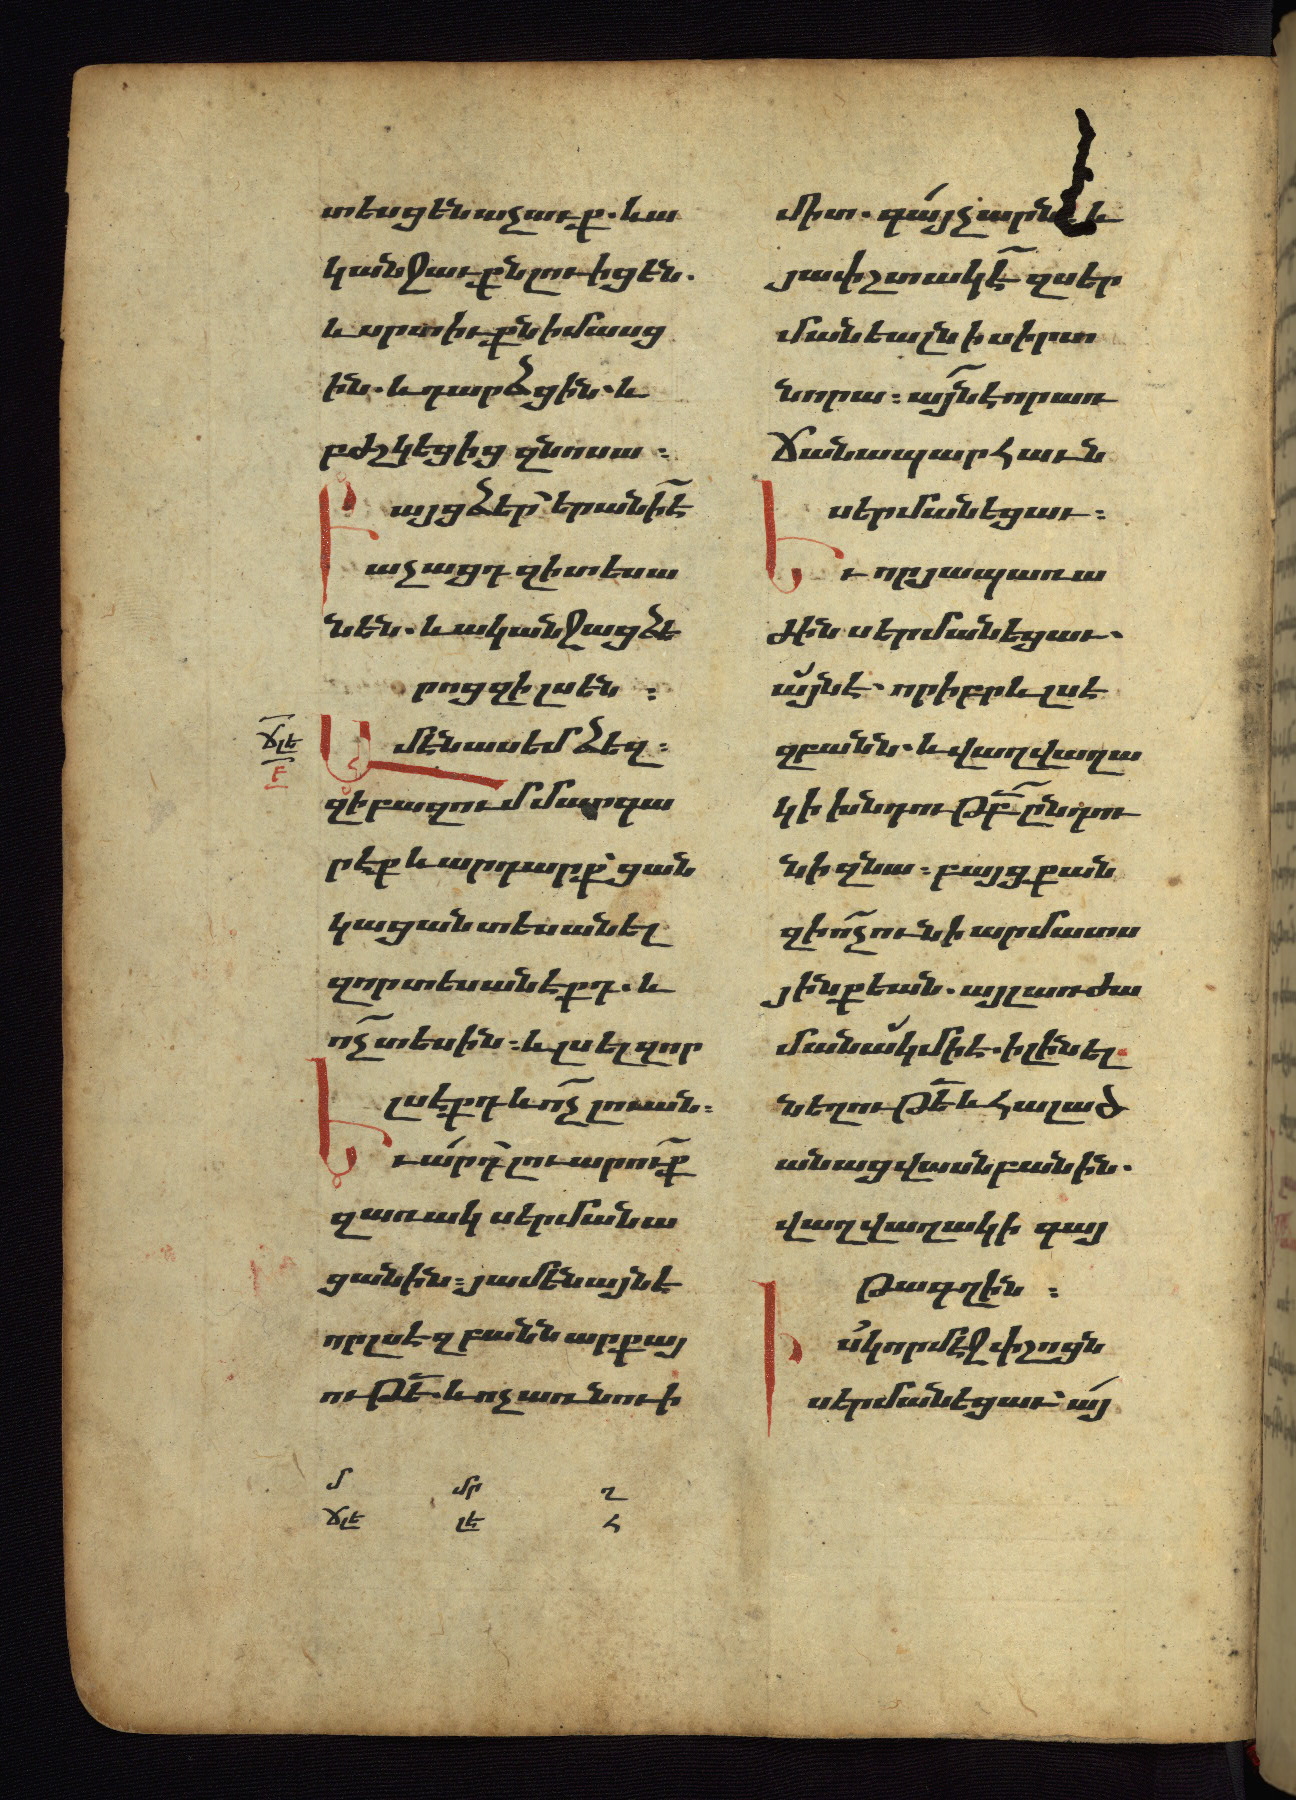 տեսցեն աչաւք․ և ա
կանջաւքն լուիցեն․
և սրտիւքն իմասց
ին․ և դարձցին․ և
բժշկեցից զնոսա ։
Բայց ձեր երանի՜ է
աչացդ զի տեսա
նեն․ և ականջաց ձե
րոց զի լսեն ։
ՃԼԵ
Ե
Ամէն ասեմ ձեզ ։
զի բազում մարգա
րէք և արդարք ցան
կացան տեսանել
զոր տեսանէքդ․ և
ո՜չ տեսին ։ և լսել զոր
լսէքդ և ո՜չ լուան ։
Եւ արդ լուարո՜ւք
զառակ սերմանա
ցանին ։ յամենայնէ
որ լսէ զբանն արքայ
ութե՜․ և ոչ առնու ի
միտ․ գայ չարն և
յափշտակէ՜ զսեր
մանեալն ի սիրտ
նորա ։ ա՜յնէ որ առ
ճանապարհաւն
սերմանեցաւ ։
Եւ որ յապառա
ժին սերմանեցաւ․
այնէ․ որ իբրև լսէ
զբանն․ և վաղվաղա
կի խնդութբ՜ ընդու
նի զնա ։ բայց քան
զի ո՜չ ունի արմատս
յինքեան․ այլ առ ժա
մանակ մի է․ ի լինել
նեղութե՜ և հալած
անաց վասն բանին․
վաղվաղակի գայ
թագղին ։
Իսկ որ մէջ փշոցն
սերմանեցաւ այ
մ մր ղ
ՃԼԵ ԼԵ Հ